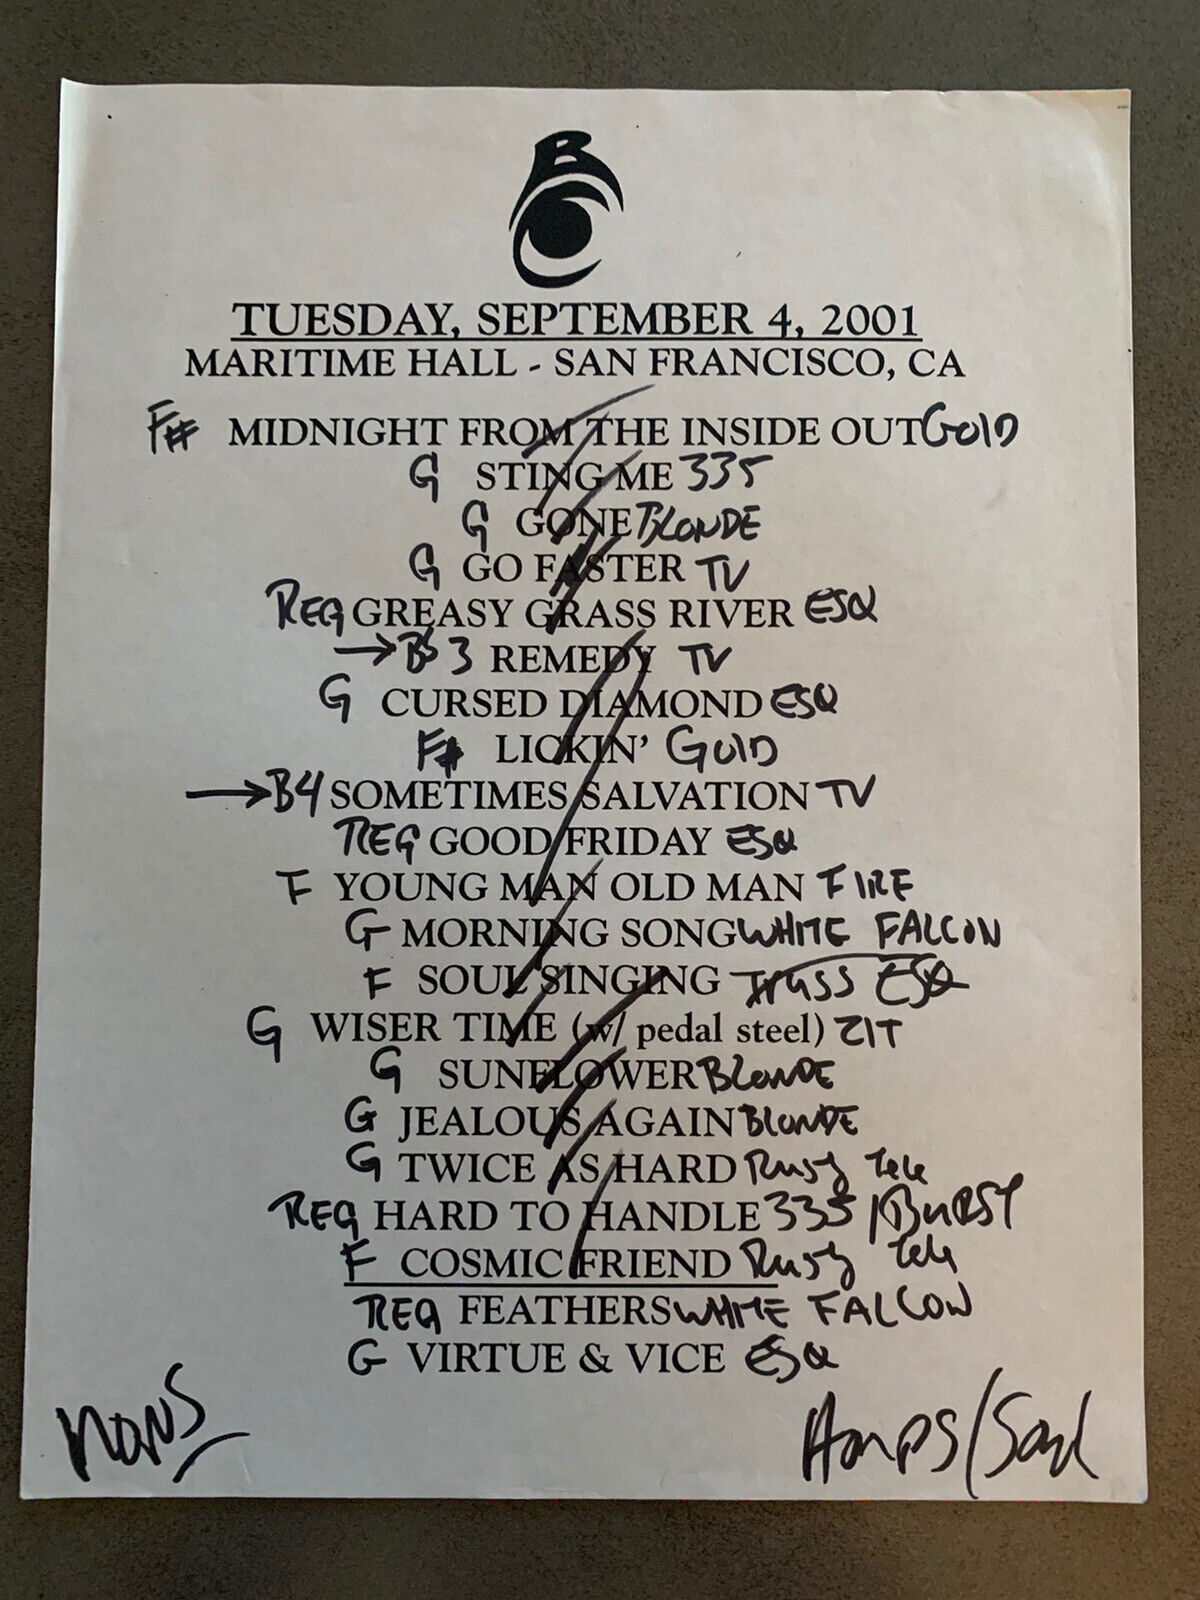 B
TUESDAY, SEPTEMBER 4, 2001
MARITIME HALL - SAN FRANCISCO, CA
F# MIDNIGHT FROM THE INSIDE OUT GOlD
G STING ME 335
G GONE BLONDE
G GO FASTER TV
REG GREASY GRASS RIVER ESQ
→ 3 REMEDY TV
G CURSED DIAMOND ESQ
F# LICKIN' GOlD
→ B4 SOMETIMES SALVATION TV
REG GOOD FRIDAY ESQ
F YOUNG MAN OLD MAN FIRE
G MORNING SONG WHITE FALCON
F SOUL SINGING ESQ
G WISER TIME (w/ pedal steel) ZIT
G SUNFLOWER BLONDE
G JEALOUS AGAIN BLONDE
G TWICE AS HARD Rusty tele
REG HARD TO HANDLE 335 / BURST
F COSMIC FRIEND Rusty tele
REG FEATHERS WHITE FALCON
G VIRTUE & VICE ESQ
Amps/